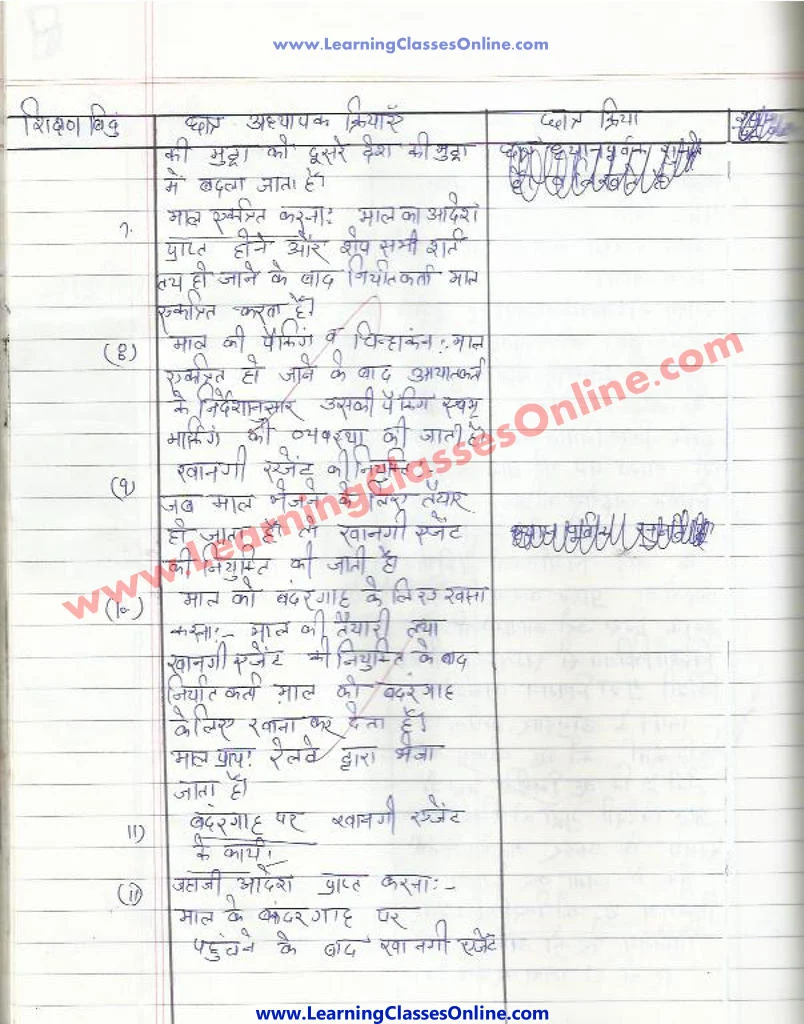 www.LearningClassesOnline.com
शिक्षण बिंदु छात्र अध्यापक क्रियाएँ छात्र क्रिया
की मुद्रा को दूसरे देश की मुद्रा
में बदला जाता है।
माल एकत्रित करना: माल का आदेश
7. प्राप्त होने और शेष सभी शर्ते
तय हो जाने के बाद निर्यातकर्ता माल
एकत्रित करता है।
(8) माल की पैकिंग व चिन्हांकन: माल
एकत्रित हो जाने के बाद आयातकर्ता
के निर्देशानसार उसकी पैकिंग एवम्
मार्किंग की व्यवस्था की जाती है
रवानगी एजेंट की नियुक्ति :-
(9) जब माल भेजने के लिए तैयार
हो जाता है तो रवानगी एजेंट
की नियुक्ति की जाती है।
(10) माल को बंदरगाह के लिए रवाना
करना:- माल की तैयारी तथा
रवानगी एजेंट की नियुक्ति के बाद
निर्यातकर्ता माल को बंदरगाह
के लिए रवाना कर देता है।
माल प्राय: रेलवे द्वारा भेजा
जाता है।
11) बंदरगाह पर रवानगी एजेंट
के कार्य।
(11) जहाजी आदेश प्राप्त करना:-
माल के बंदरगाह पर
पहुंचने के बाद रवानगी एजेंट
www.LearningClassesOnline.com
www.LearningClassesOnline.com